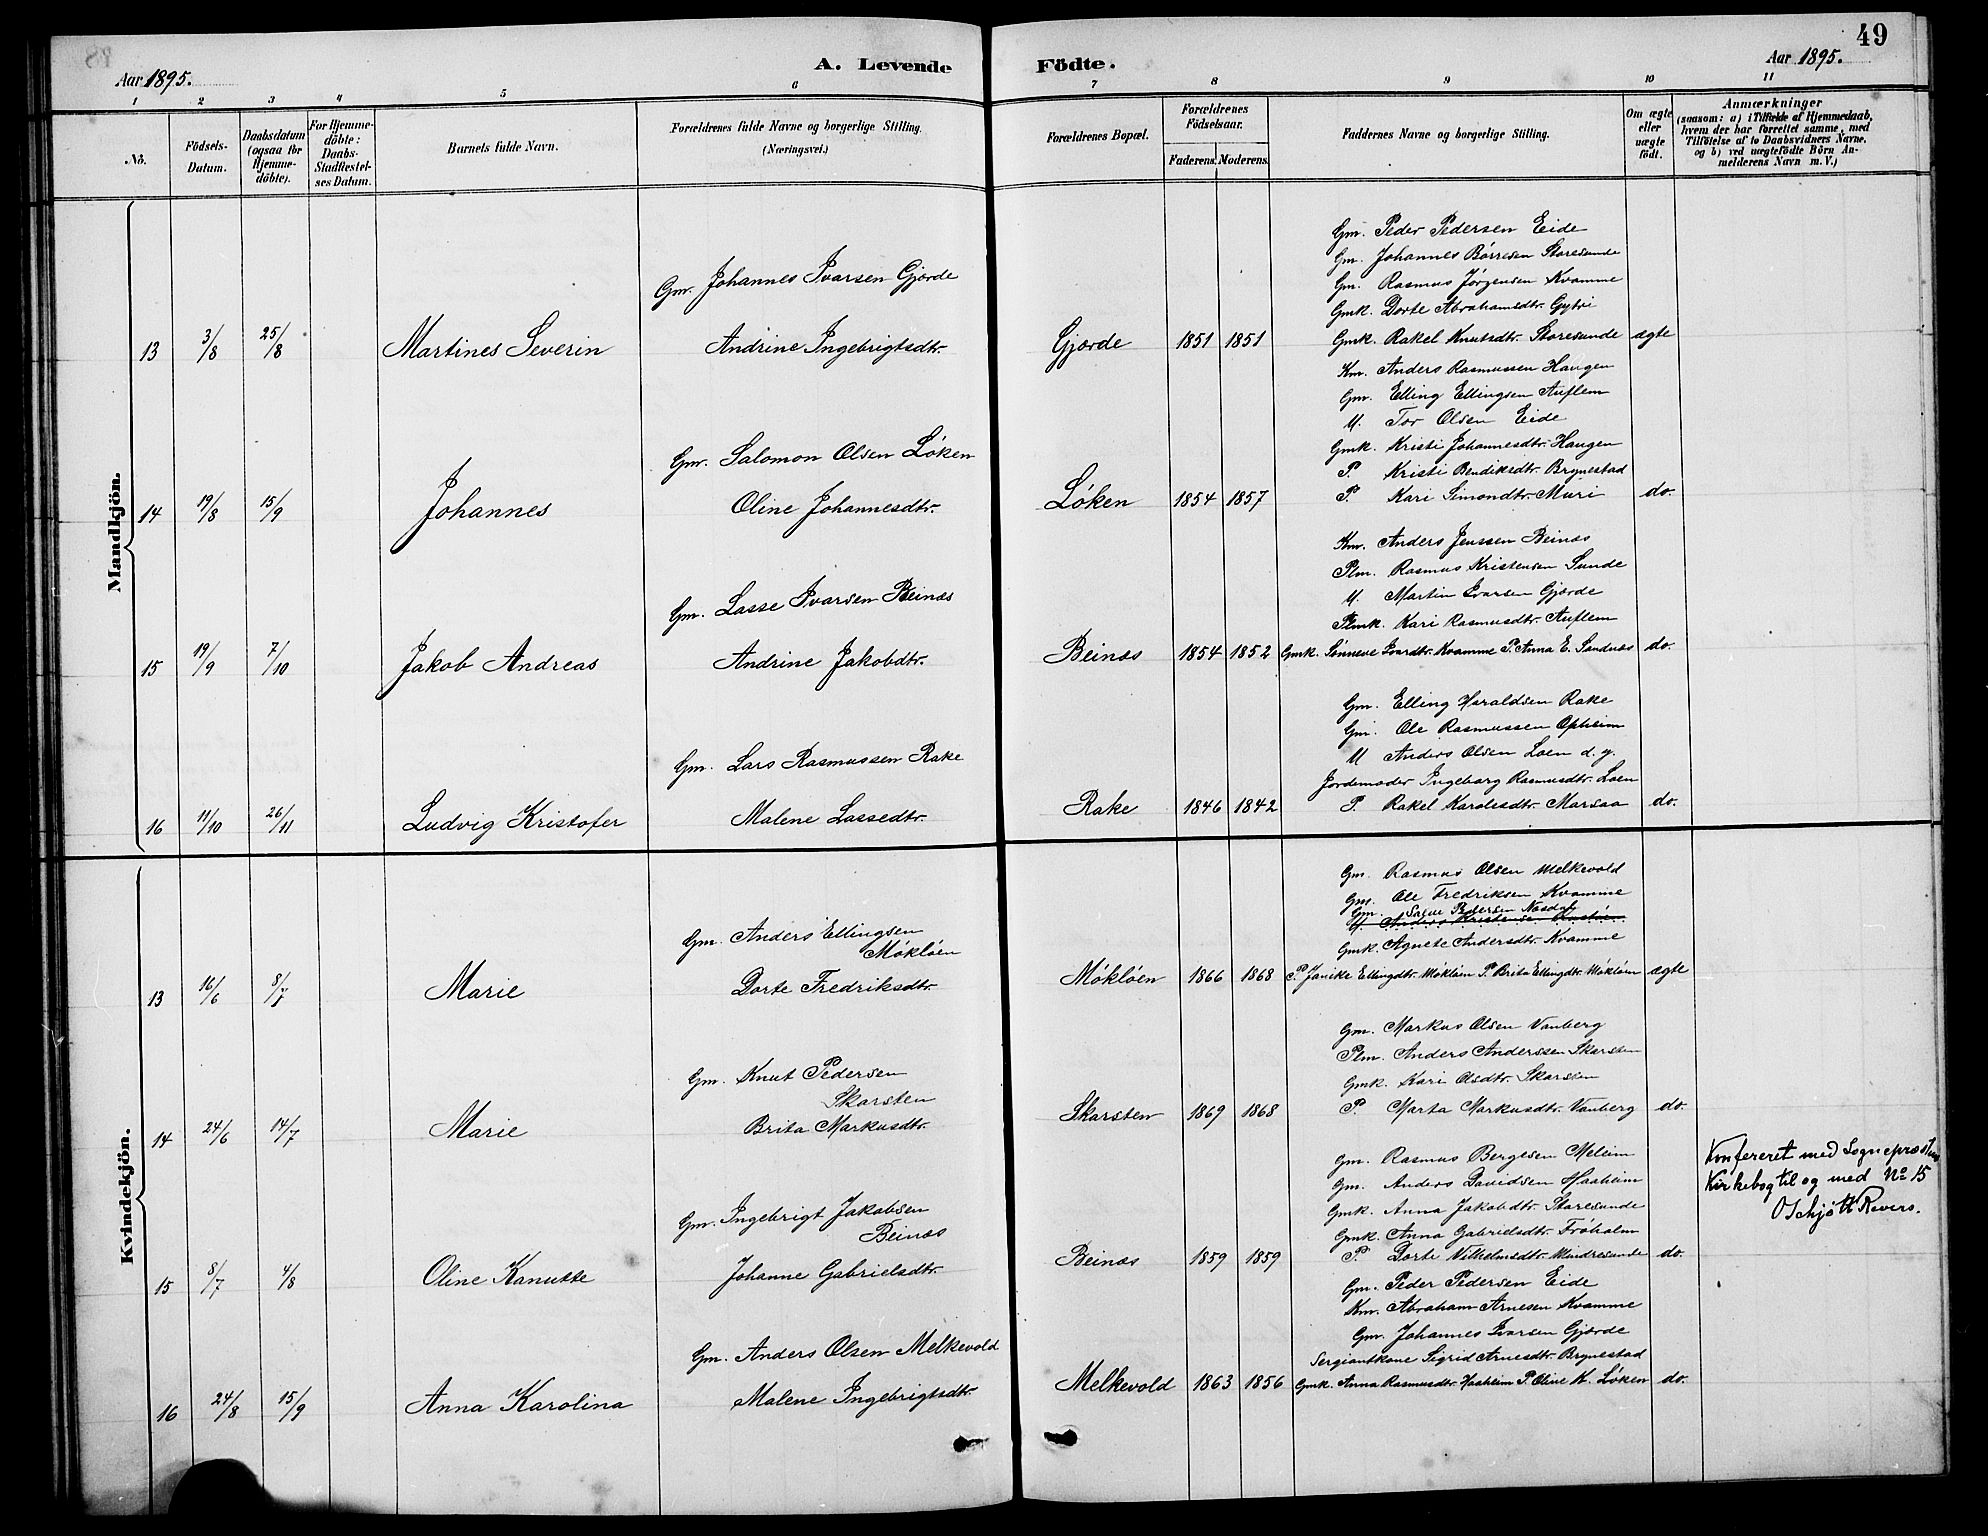 49
Aar 1895.
A. Levende Födte.
Aar 1895.
1 2 3 4 5 6 7 8 9 10 11
No.
Födsels-Datum.
Daabsdatum (ogsaa for Hjemme-döbte).
For Hjemme-döbte: Daabs-Stadfæstel-ses Datum.
Barnets fulde Navn.
Forældrenes fulde Navne og borgerlige Stilling.
(Næringsvei.)
Forældrenes Bopæl.
Forældrenes Födselsaar.
Faderens. Moderens.
Faddernes Navne og borgerlige Stilling.
Om ægte eller uægte födt.
Anmærkninger
(saasom: a) i Tilfælde af Hjemmedaab,
hvem der har forrettet samme, med
Tilföielse af to Daabsvidners Navne,
og b) ved uægtefödte Börn An-
melderens Navn m. V.)
Mandkjön.
Gm. Peder Pedersen Eide
Gm. Johannes Børresen Storesunde
Gm. Johannes Ivarsen Gjørde
Gm. Rasmus Jørgensen Kvamme
Gmk. Dorte Abrahamsdtr. Gytri
13 3/8 25/8 Martines Severin Andrine Ingebrigtsdtr. Gjørde 1851 1851 Gmk. Rakel Knutsdtr. Storesunde ægte
Km. Anders Rasmussen Haugen
Gm. Elling Ellingsen Auflem
U. Tor Olsen Eide
Gm. Salomon Olsen Løken
Gmk. Kristi Johannesdtr. Haugen
P. Kristi Bendiksdtr. Brynestad
14 19/8 15/9 Johannes Oline Johannesdtr. Løken 1854 1857 P. Kari Simondtr. Muri do.
Km. Anders Jenssen Beinæs
Plm. Rasmus Kristensen Sunde
Gm. Lasse Ivarsen Beinæs
U. Martin Ivarsen Gjørde
Plmk. Kari Rasmusdtr. Auflem
15 19/9 7/10 Jakob Andreas Andrine Jakobdtr. Beinæs 1854 1852 Gmk. Sønneve Ivardtr. Kvamme P. Anna E. Sandnæs do.
Gm. Elling Haraldsen Rake
Gm. Ole Rasmussen Opheim
Gm. Lars Rasmussen Rake
U Anders Olsen Loen d. y.
Jordemoder Ingeborg Rasmusdtr. Loen
16 11/10 26/11 Ludvig Kristofer Malene Lassedtr. Rake 1846 1842 P. Rakel Karolesdtr. Marsaa do.
Kvindekjön.
Gm. Rasmus Olsen Melkevold
Gm. Ole Fredriksen Kvamme
Gm. Pedersen
U. Anders Kristensen
Gm. Anders Ellingsen
Møkløen
Gmk. Agnete Andersdtr. Kvamme
13 16/6 8/7 Marie Dorte Fredriksdtr. Møkløen 1866 1868 P. Janike Ellingdtr. Møkløen P. Brita Ellingdtr. Møkløen ægte
Gm. Markus Olsen Vanberg
Plm. Anders Anderssen Skarsten
Gm. Knut Pedersen
Skarsten
Gmk. Kari Olsdtr. Skarsten
14 24/6 14/7 Marie Brita Markusdtr. Skarsten 1869 1868 P. Marta Markusdtr. Vanberg do.
Gm. Rasmus Bergesen Meleim
Gm. Anders Davidsen Haaheim
Gm. Ingebrigt Jakobsen
Beinæs
Gmk. Anna Jakobdtr. Storesunde
Gmk. Anna Gabrielsdtr. Frøholm
15 8/7 4/8 Oline Kanutte Johanne Gabrielsdtr. Beinæs 1859 1859 P. Dorte Vilhelmsdtr. Mindresunde do.
Konfereret med Sognepræstens
Kirkebog til og med No 15
OSchjøtt Revers.
Gm. Peder Pedersen Eide
Km. Abraham Arnesen Kvamme
Gm. Anders Olsen Melkevold
Gm. Johannes Ivarsen Gjørde
Sergiantkone Sigrid Arnesdtr. Brynestad
16 24/8 15/9 Anna Karolina Malene Ingebrigtsdtr. Melkevold 1863 1856 Gmk. Anna Rasmusdtr. Haaheim P. Oline K. Løken do.